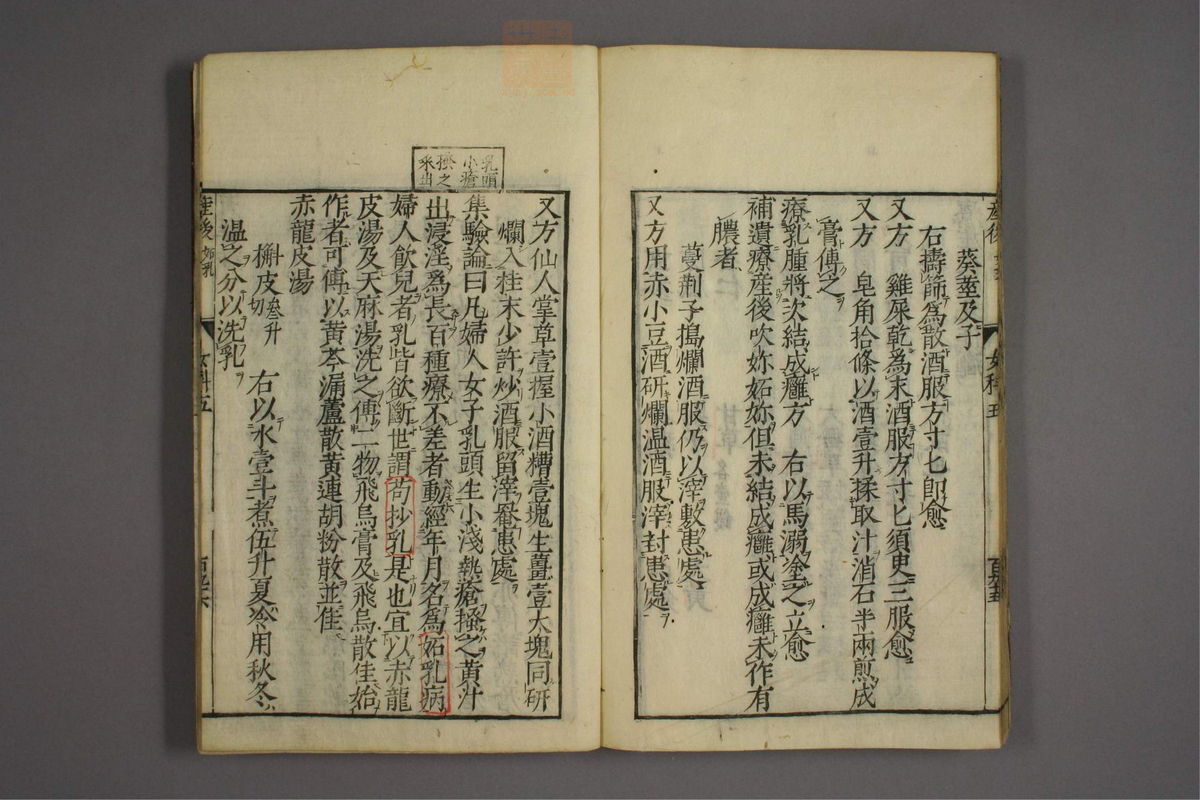 葵莖及子
右擣篩爲散酒服方寸匕即愈
又方　雞屎乾爲末酒服方寸匕須臾三服愈
又方　皂角拾條以酒壹升揉取汁消石半兩煎成
膏傅之
療乳腫將次結成癰方　右以馬溺塗之立愈
補遺療産後吹妳妬妳但未結成癰或成癰未作有
膿者
蔓荆子搗爛酒服仍以滓敷患處
又方用赤小豆酒研爛温酒服滓封患處
又方仙人掌草壹握小酒糟壹塊生薑壹大塊同研
爛入桂末少許炒酒服留滓罨患處
乳頭
小瘡
搔之
汁出
集驗論曰凡婦人女子乳頭生小淺熱瘡搔之黄汁
出浸淫爲長百種療不差者動經年月名爲妬乳病
婦人飲兒者乳皆欲斷世謂苟抄乳是也宜以赤龍
皮湯及天麻湯洗之傅二物飛烏膏及飛烏散佳始
作者可傅以黄芩漏蘆散黄連胡粉散並佳
赤龍皮湯
槲皮切叁升　右以水壹斗煮伍升夏冷用秋冬
温之分以洗乳
産後　妬乳　女科五
女科五